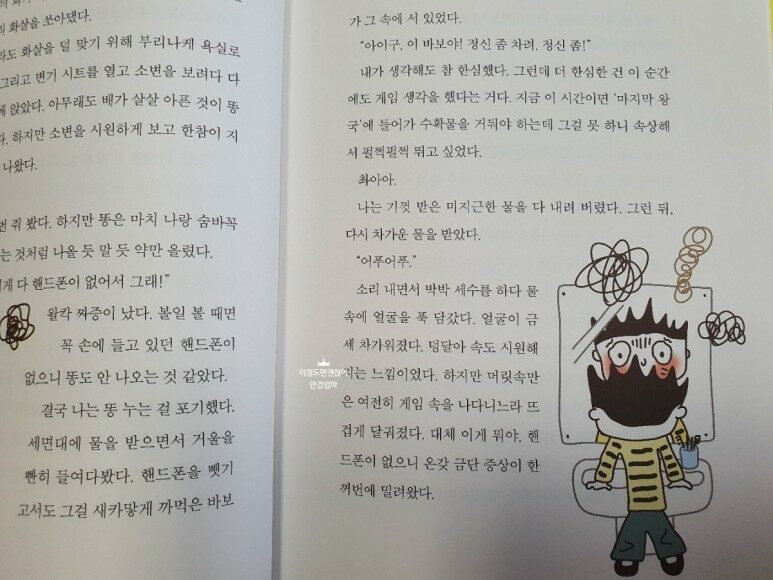 의 화살을 쏘아댔다.
라도 화살을 덜 맞기 위해 부리나케 욕실로
그리고 변기 시트를 열고 소변을 보려다 다
에 앉았다. 아무래도 배가 살살 아픈 것이 똥
다. 하지만 소변을 시원하게 보고 한참이 지
나왔다.
번 줘 봤다. 하지만 똥은 마치 나랑 숨바꼭
는 것처럼 나올 듯 말 듯 약만 올렸다.
게 다 핸드폰이 없어서 그래!"
왈칵 짜증이 났다. 볼일 볼 때면
꼭 손에 들고 있던 핸드폰이
없으니 똥도 안 나오는 것 같았다.
결국 나는 똥 누는 걸 포기했다.
세면대에 물을 받으면서 거울을
빤히 들여다봤다. 핸드폰을 뺏기
고서도 그걸 새카맣게 까먹은 바보
가 그 속에 서 있었다.
"아이구, 이 바보야! 정신 좀 차려. 정신 좀!"
내가 생각해도 참 한심했다. 그런데 더 한심한 건 이 순간
에도 게임 생각을 했다는 거다. 지금 이 시간이면 '마지막 왕
국'에 들어가 수확물을 거둬야 하는데 그걸 못 하니 속상해
서 펄쩍펄쩍 뛰고 싶었다.
촤아아.
나는 기껏 받은 미지근한 물을 다 내려 버렸다. 그런 뒤,
다시 차가운 물을 받았다.
"어푸어푸."
소리 내면서 박박 세수를 하다 물
속에 얼굴을 푹 담갔다. 얼굴이 금
세 차가워졌다. 덩달아 속도 시원해
지는 느낌이었다. 하지만 머릿속만
은 여전히 게임 속을 나다니느라 뜨
겁게 달궈졌다. 대체 이게 뭐야. 핸
드폰이 없으니 온갖 금단 증상이 한
꺼번에 밀려왔다.
이정도면괜찮아
안경엄마